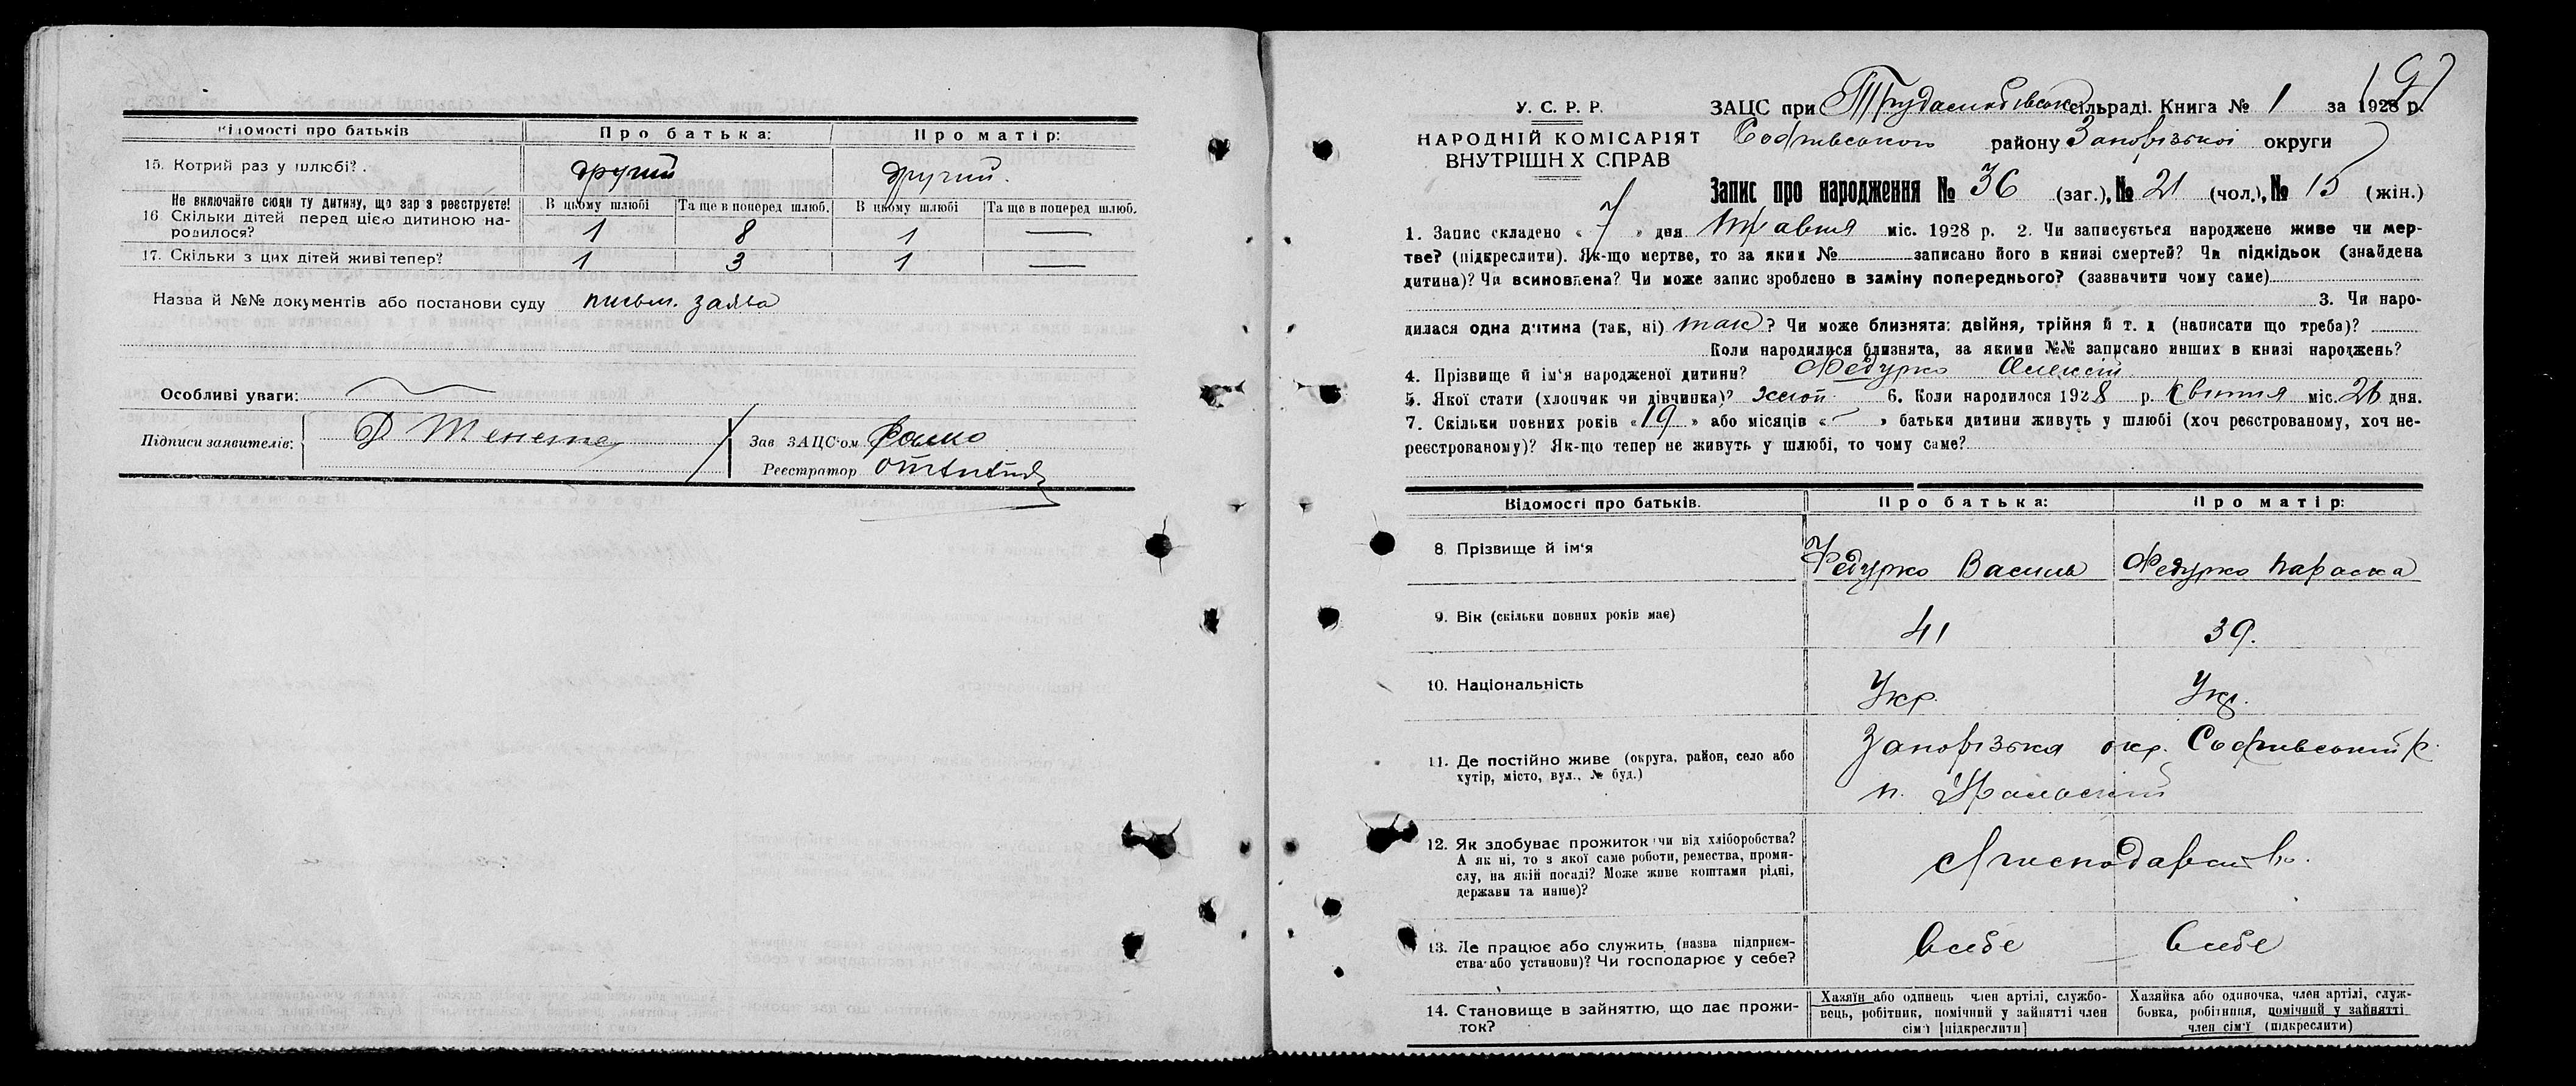 Відомості про батьків
Про батька:
Про матір:
15. Котрий раз у шлюбі?.
другий
другий.
Не включайте сюди ту дитину, що зараз реєструєте!
16 Скільки дітей перед цією дитиною на-
родилося?
В цьому шлюбі
Та ще в поперед шлюб.
В цьому шлюбі
Та ще в поперед шлюб.
1
8
1
—
17. Скільки з цих дітей живі тепер?
1
3
1
—
Назва й №№ документів або постанови суду письм. заява
Особливі уваги:
Підписи заявителів:
Зав ЗАЦС'ом
Реєстратор
У. С. Р. Р.
НАРОДНІЙ КОМІСАРІЯТ
ВНУТРІШНІХ СПРАВ
197
ЗАЦС при сільраді. Книга № 1 за 1928 р.
Софиївського району Запорізької округи
Запис про народження № 36 (заг.), № 21 (чол.), № 15 (жін.)
1. Запис складено « 7 » дня травня міс. 1928 р. 2. Чи записується народжене живе чи мер-
тве? (підкреслити). Як-що мертве, то за яким № записано його в книзі смертей? Чи підкідьок (знайдена
дитина)? Чи всиновлена? Чи може запис зроблено в заміну попереднього? (зазначити чому саме)
3. Чи наро-
дилася одна дитина (так, ні) так? Чи може близнята: двійня, трійня й т. д (написати що треба)?
Коли народилися близнята, за якими №№ записано инших в книзі народжень?
4. Прізвище й ім'я народженої дитини? Федурко Олексій
5. Якої стати (хлопчик чи дівчинка)? хлоп. 6. Коли народилося 1928 р. квітня міс. 26 дня.
7. Скільки повних років « 19 » або місяців « — » батьки дитини живуть у шлюбі (хоч реєстрованому, хоч не-
реєстрованому)? Як-що тепер не живуть у шлюбі, то чому саме?
Відомості про батьків.
Про батька:
Про матір:
8. Прізвище й ім'я
Федурко Василь
Федурко Параска
9. Вік (скільки повних років має)
41
39.
10. Національність
Укр.
Укр.
11. Де постійно живе (округа, район, село або
хутір, місто, вул., № буд.)
Запорізька окр. Софиївський р.
12. Як здобуває прожиток чи від хліборобства?
А як ні, то з якої саме роботи, ремества, проми-
слу, на якій посаді? Може живе коштами рідні,
держави та инше)?
13. Де працює або служить (назва підприєм-
ства або установи)? Чи господарює у себе?
в себе
в себе
14. Становище в зайняттю, що дає прожи-
ток?
Хазяїн або одинець член артілі, службо-
вець, робітник, помічний у зайнятті член
сім'ї [підкреслити]
Хазяйка або одиночка, член артілі, служ-
бовка, робітниця, помічний у зайнятті
член сім'ї (підкреслити)